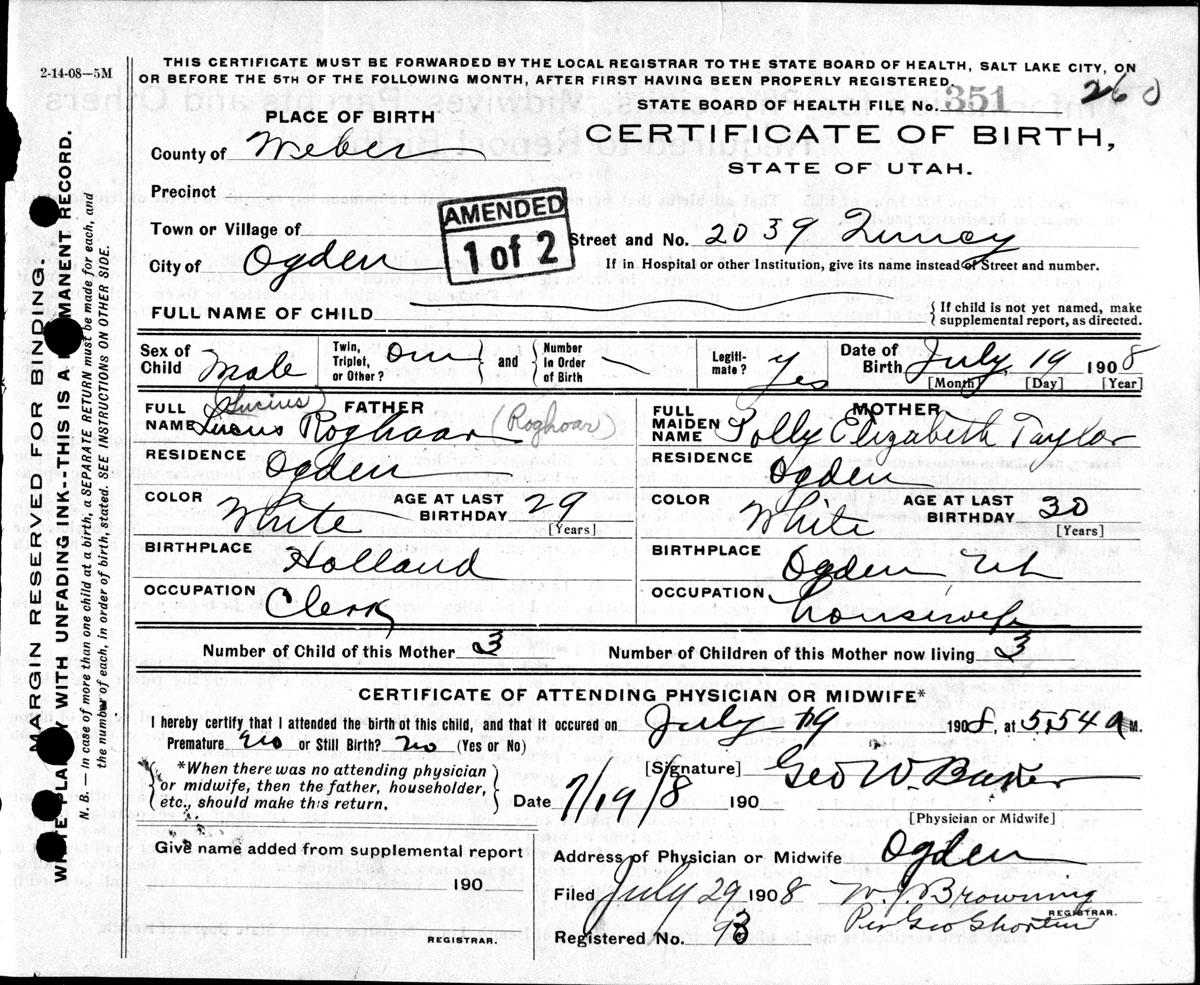 2-14-08—5M
THIS CERTIFICATE MUST BE FORWARDED BY THE LOCAL REGISTRAR TO THE STATE BOARD OF HEALTH, SALT LAKE CITY, ON
OR BEFORE THE 5TH OF THE FOLLOWING MONTH, AFTER FIRST HAVING BEEN PROPERLY REGISTERED.
STATE BOARD OF HEALTH FILE No. 351 260
PLACE OF BIRTH
CERTIFICATE OF BIRTH,
STATE OF UTAH.
County of Weber
Precinct
AMENDED
1 of 2
Town or Village of
Street and No. 2039 Quincy
City of Ogden
If in Hospital or other Institution, give its name instead of Street and number.
FULL NAME OF CHILD
{ If child is not yet named, make
supplemental report, as directed.
Sex of Child Male
Twin, Triplet, or Other? One } and { Number in Order of Birth —
Legiti- mate? Yes
Date of Birth July 19 1908
[Month] [Day] [Year]
FATHER
FULL NAME (Lucius) Roghaar (Roghoar)
RESIDENCE Ogden
COLOR White AGE AT LAST BIRTHDAY 29
[Years]
BIRTHPLACE Holland
OCCUPATION Clerk
MOTHER
FULL MAIDEN NAME Polly Elizabeth Taylor
RESIDENCE Ogden
COLOR White AGE AT LAST BIRTHDAY 30
[Years]
BIRTHPLACE Ogden Ut
OCCUPATION housewife
Number of Child of this Mother 3 Number of Children of this Mother now living 3
CERTIFICATE OF ATTENDING PHYSICIAN OR MIDWIFE*
I hereby certify that I attended the birth of this child, and that it occured on July 19 1908, at 5:54 a M.
Premature no or Still Birth? no (Yes or No)
*When there was no attending physician
or midwife, then the father, householder,
etc., should make this return.
[Signature] Geo W. Baker
Date 7/19/8 190
[Physician or Midwife]
Give name added from supplemental report
190
REGISTRAR.
Address of Physician or Midwife Ogden
Filed July 29 1908 W. J. Browning
REGISTRAR.
Per Geo
Registered No. 93
MARGIN RESERVED FOR BINDING.
WRITE PLAINLY WITH UNFADING INK--THIS IS A PERMANENT RECORD.
N. B.—In case of more than one child at a birth, a SEPARATE RETURN must be made for each, and
the number of each, in order of birth, stated. SEE INSTRUCTIONS ON OTHER SIDE.